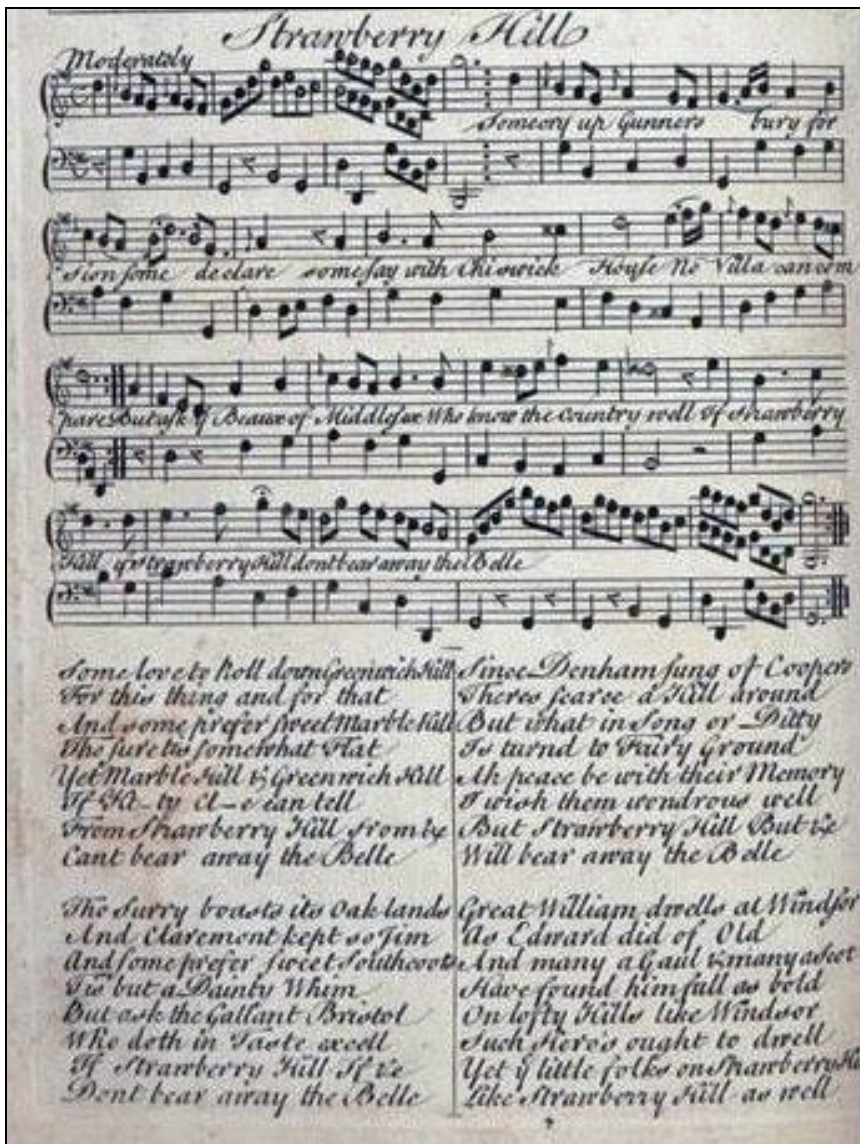 Strawberry Hill
Moderately
Some cry up Gunners bury for
Sion some declare some say with Chiswick House No Villa can com
pare But ask yͤ Beaux of Middlesex Who know the Country well If Strawberry
Hill If Strawberry Hill dont bear away the Belle
Some love to Roll down Greenwich Hill
For this thing and for that
And some prefer sweet Marble Hill
Tho sure tis somewhat Flat
Yet Marble Hill & Greenwich Hill
If Ki-ty Cl-e can tell
From Strawberry Hill From &c
Cant bear away the Belle
Tho Surry boasts its Oaklands
And Claremont kept so Jim
And some prefer sweet Southcoots
Tis but a Dainty Whim
But ask the Gallant Bristol
Who doth in Taste excell
If Strawberry Hill If &c
Dont bear away the Belle
Since Denham sung of Coopers
Theres scarce a Hill around
But what in Song or Ditty
Is turnd to Fairy Ground
Ah peace be with their Memory
I wish them wondrous well
But Strawberry Hill But &c
Will bear away the Belle
Great William dwells at Windsor
As Edward did of Old
And many a Gaul & many a Scot
Have found him full as bold
On lofty Hills like Windsor
Such Hero's ought to dwell
Yet yͤ little folks on Strawberry
Like Strawberry Hill as well